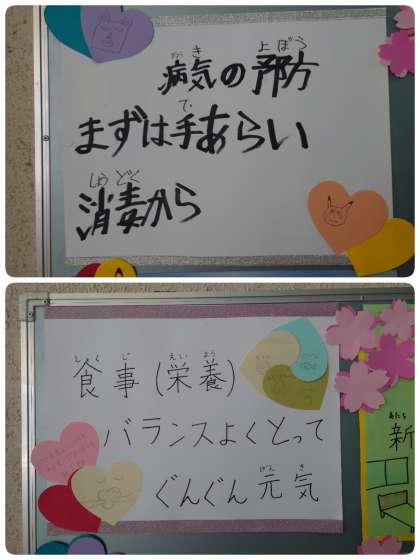 びょうき
よぼう
病気の予防
て
まずは手あらい
しょうどく
消毒から
しょくじ
えいよう
食事(栄養)
バランスよくとって
げんき
ぐんぐん元気
あたら
新